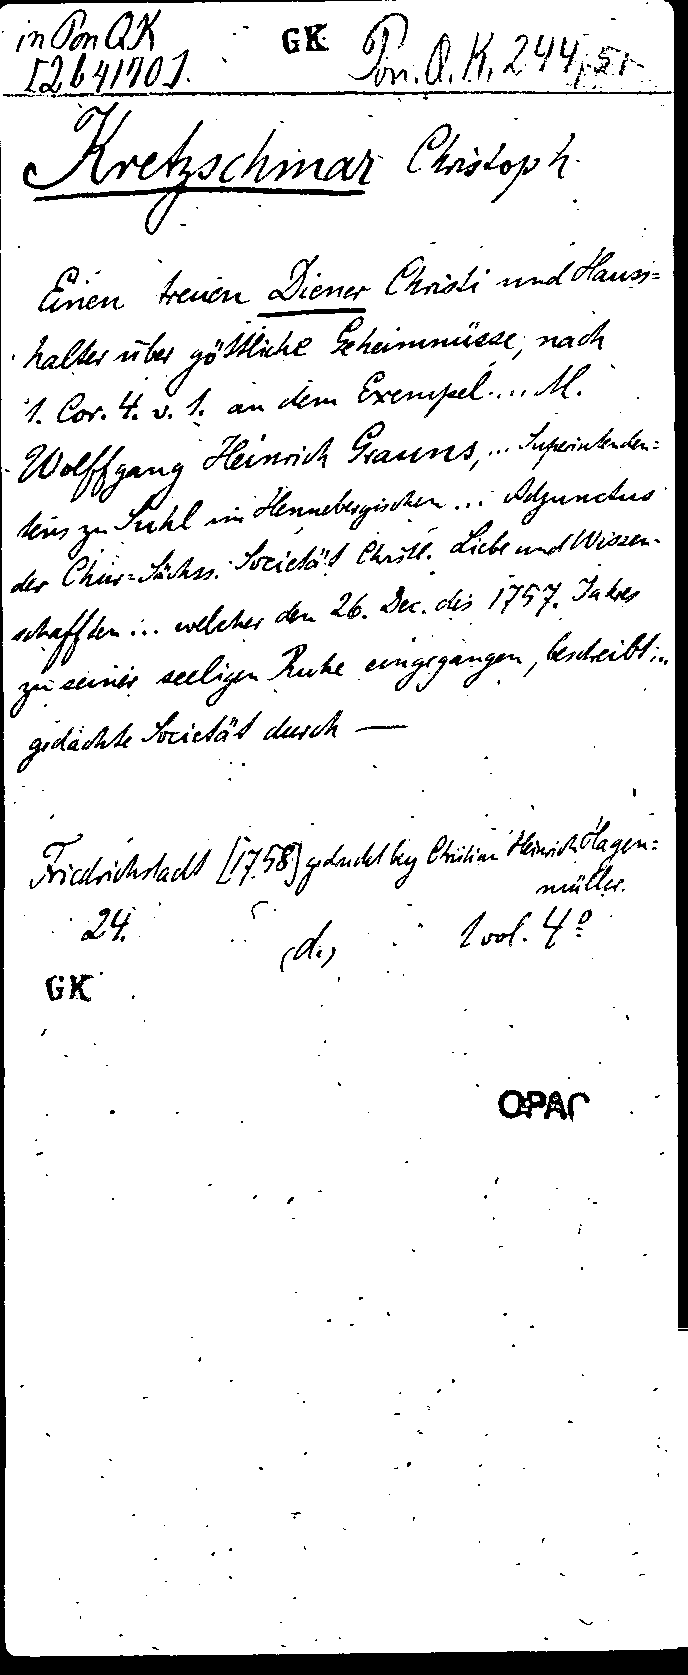 in Pon QK GK Pon. Q. K. 244, 5r
[264170].
Kretzschmar Christoph
Einen treuen Diener Christi und Hauss=
halter über göttliche Geheimnüsse, nach
1. Cor. 4. v. 1. an dem Exempel .... M.
Wolffgang Heinrich Grauns, ... Superintenden=
tens zu Suhl im Hennebergischen ... Adjunctus
der Chur=Sächss. Societät Christl. Liebe und Wissen-
schafften ... welcher den 26. Dec. des 1757. Jahres
zu seiner seeligen Ruhe eingegangen, beschreibt ...
gedachte Societät durch —
Friedrichstadt [1758] gedruckt bey Christian Heinrich Hagen=
müller.
24. (d.) 1 vol. 4º
GK
OPAC